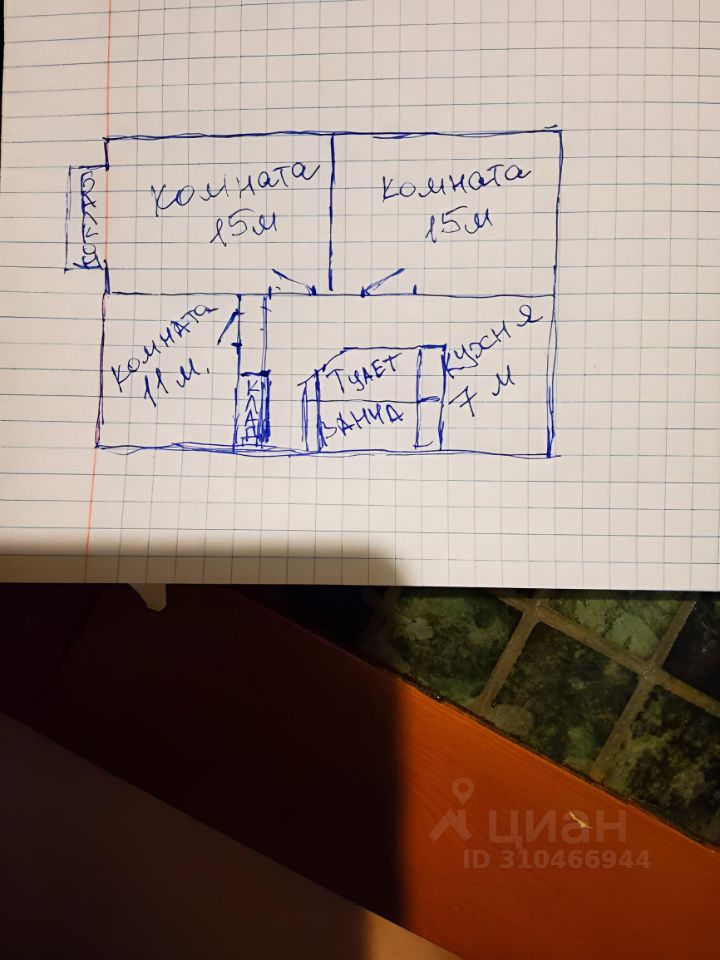 комната
15м
комната
15м
БАЛКОН
комната
11 м.
КЛАД
ТУЛЕТ
ВАННА
КУХНЯ
7 м
циан
ID 310466944